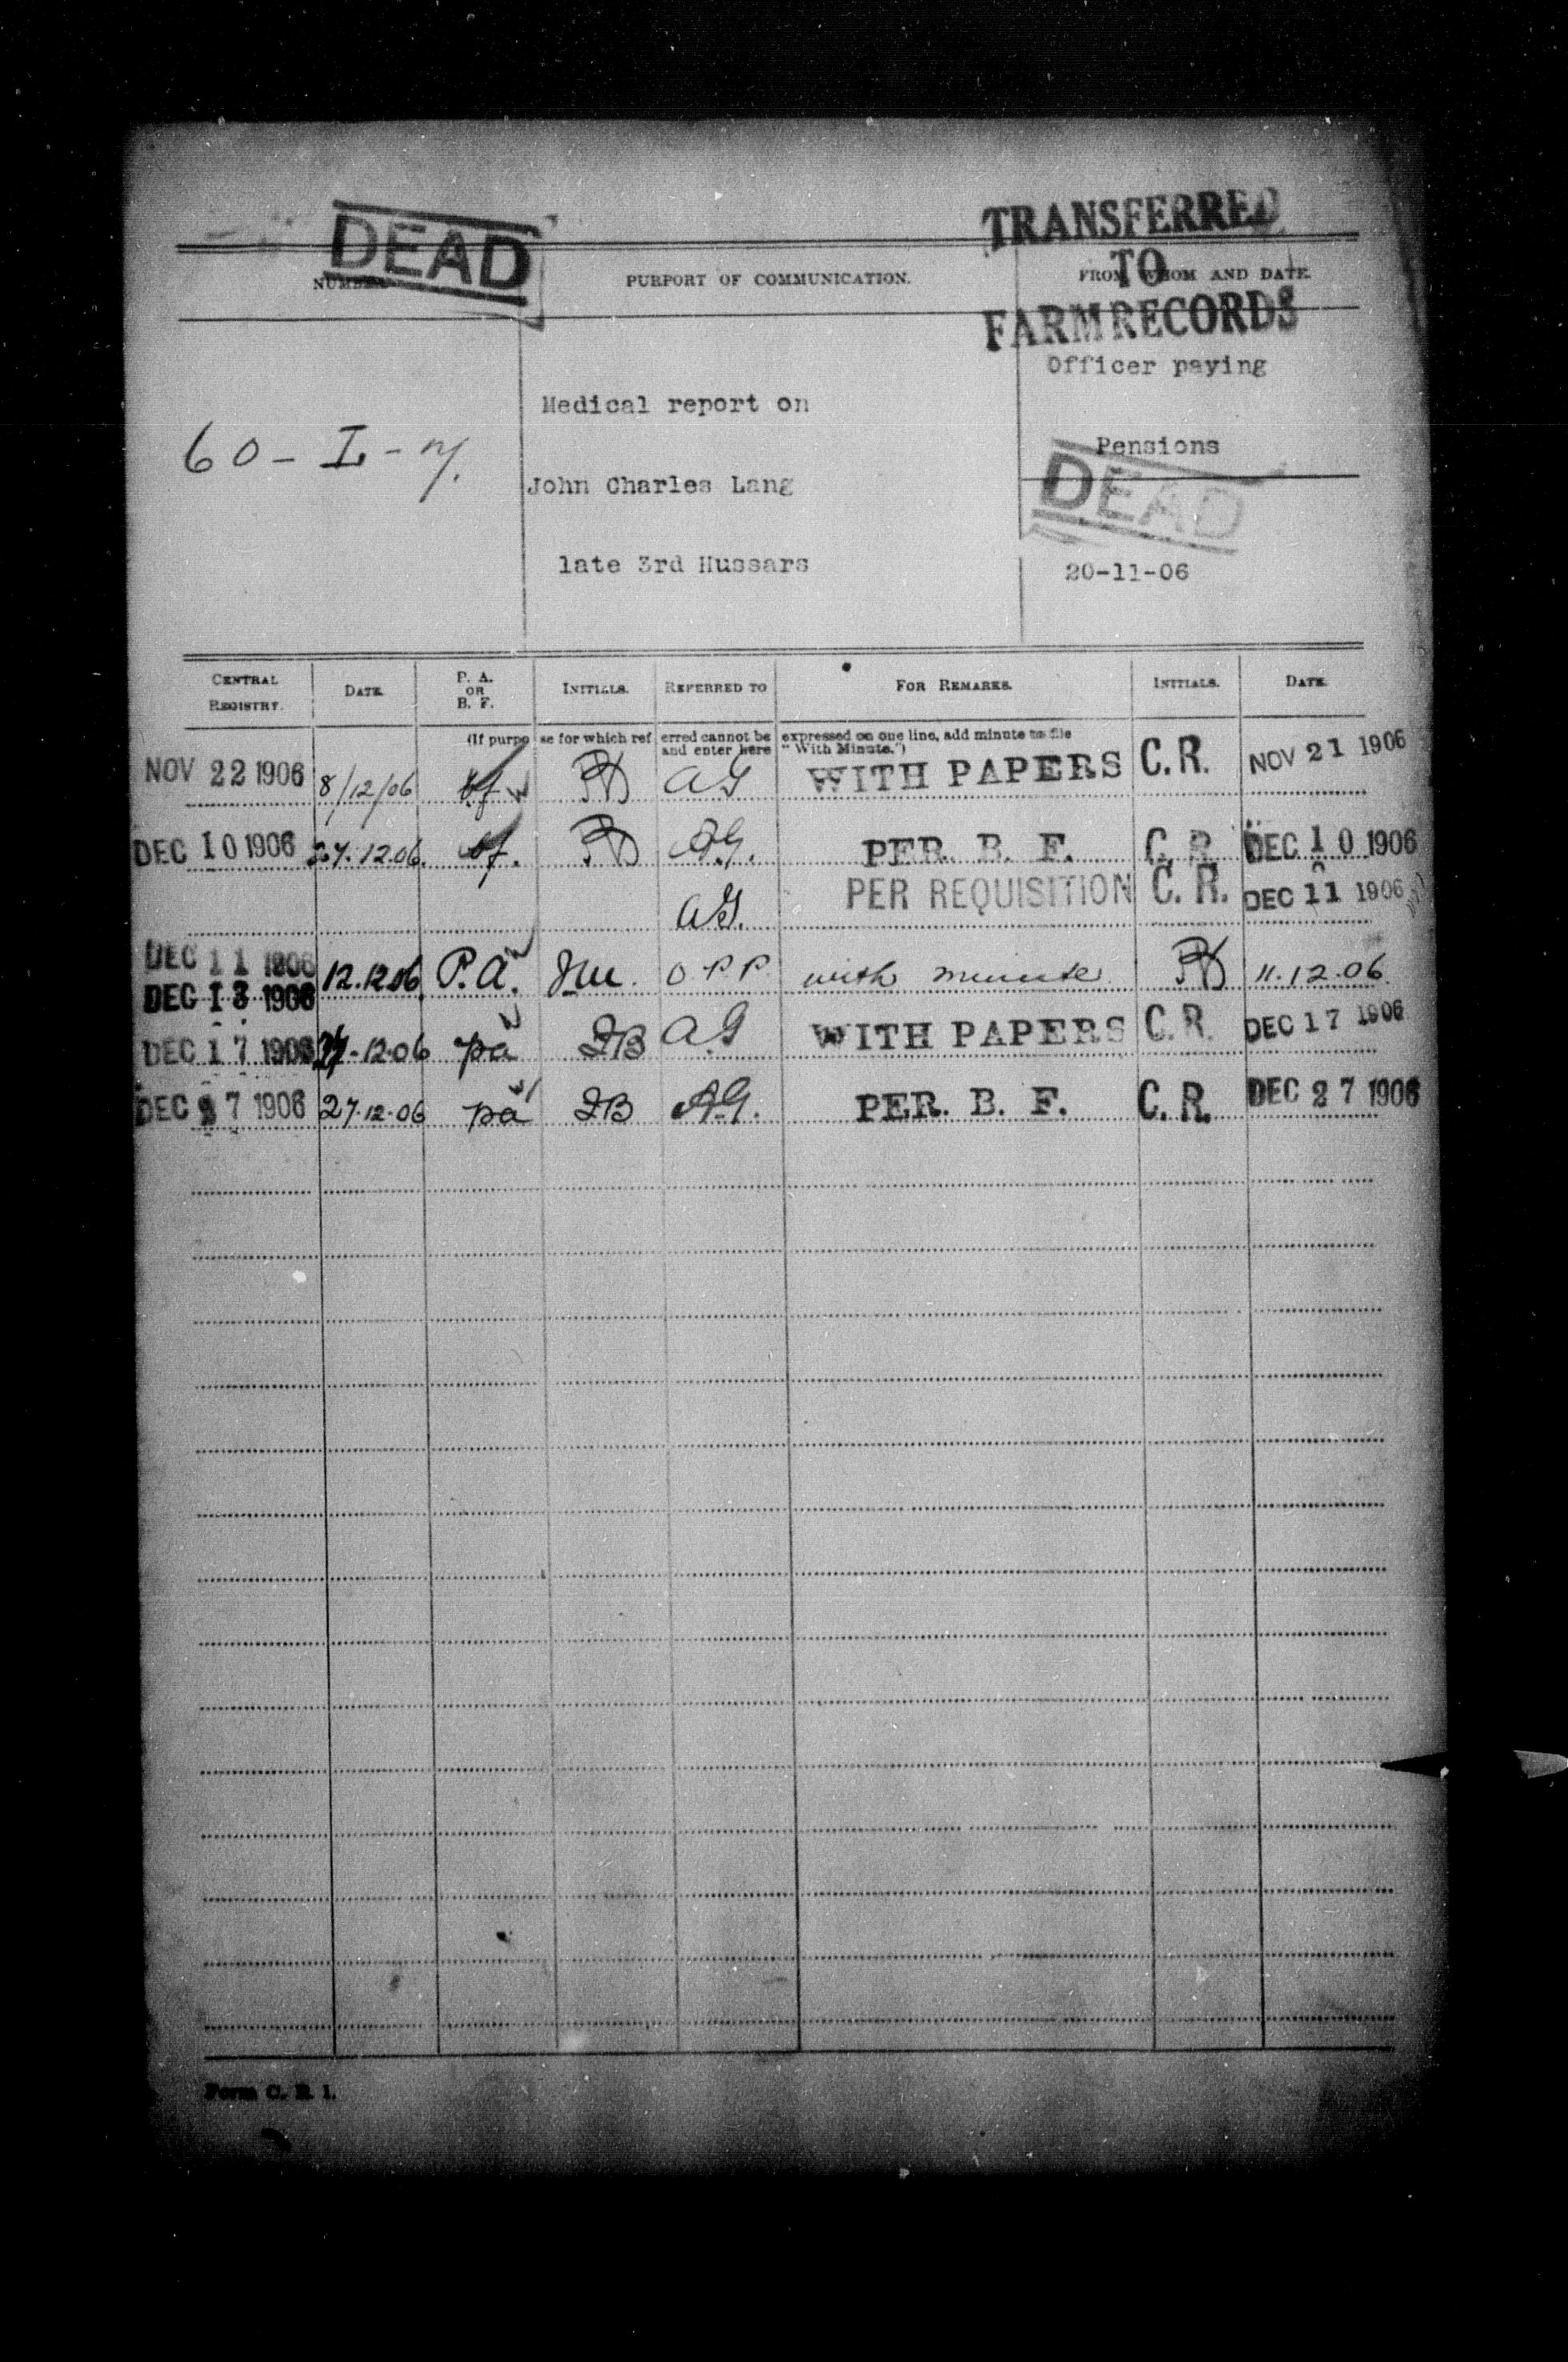 DEAD
TRANSFERRED
TO
FARM RECORDS
PURPORT OF COMMUNICATION.
FROM WHOM AND DATE.
Officer paying
Medical report on
60-L-7.
Pensions
John Charles Lang
DEAD
late 3rd Hussars
20-11-06
CENTRAL REGISTRY. DATE. P. A. OR B. F. INITIALS. REFERRED TO FOR REMARKS. INITIALS. DATE.
(If purpose for which referred cannot be expressed on one line, add minute to file
and enter here "With Minute.")
NOV 22 1906 8/12/06 bf AG WITH PAPERS C.R. NOV 21 1906
DEC 10 1906 27.12.06. bf. A.G. PER. B. F. C.R. DEC 10 1906
AG. PER REQUISITION C.R. DEC 11 1906
DEC 11 1906
DEC 13 1906 12.12.06 P.A. O P P with minute 11.12.06
DEC 17 1906 -12-06 pa AG WITH PAPERS C.R. DEC 17 1906
DEC 27 1906 27.12.06 pa A.G. PER. B. F. C.R. DEC 27 1906
Form C. R. 1.